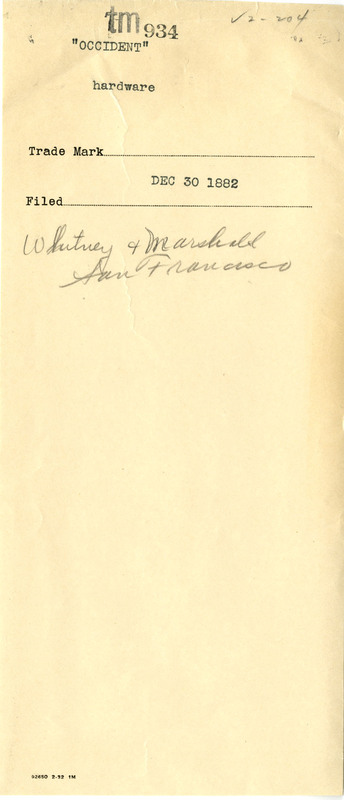 tm 934 V2-204
"OCCIDENT"
hardware
Trade Mark
DEC 30 1882
Filed
Whitney & Marshall
San Francisco
92650 2-32 1M